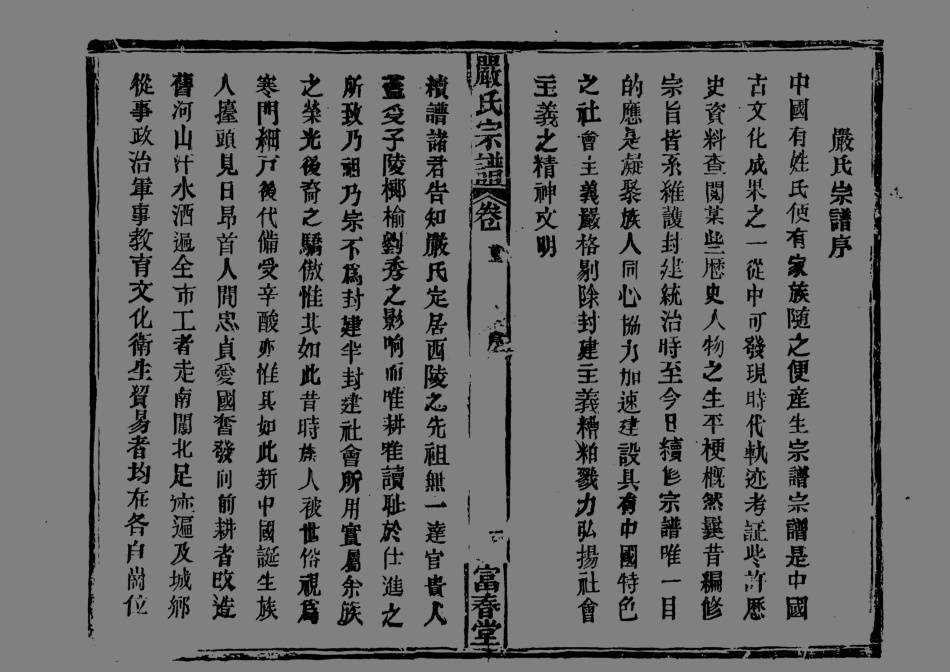 嚴氏崇譜序
中國有姓氏便有家族隨之便産生宗譜宗譜是中國
古文化成果之一從中可發現時代軌迹考証些許歷
史資料查閱某些歷史人物之生平梗概然曩昔編修
宗旨皆系維護封建統治時至今日續修宗譜唯一目
的應是凝聚族人同心協力加速建設具有中國特色
之社會主義嚴格剔除封建主義糟粕戮力弘揚社會
主義之精神文明
嚴氏宗譜
卷
序
一
富春堂
續譜諸君告知嚴氏定居西陵之先祖無一達官貴人
蓋受子陵揶榆劉秀之影响而唯耕唯讀耻於仕進之
所致乃祖乃宗不爲封建半封建社會所用實屬余族
之榮光後裔之驕傲惟其如此昔時族人被世俗視爲
寒門細戸後代備受辛酸亦惟其如此新中國誕生族
人擡頭見日昂首人間忠貞愛國奮發向前耕者改造
舊河山汗水洒遍全市工者走南闖北足迹遍及城鄉
從事政治軍事教育文化衛生貿易者均在各自崗位